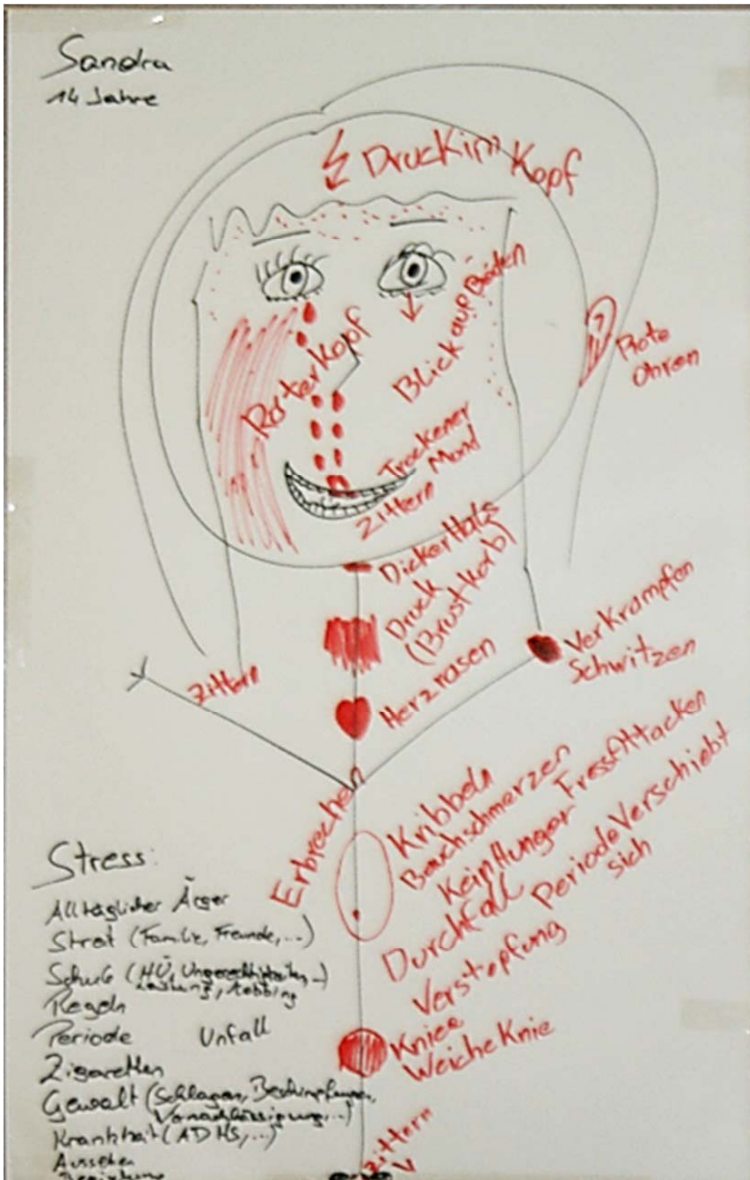 Sandra
14 Jahre
Druck im Kopf
Roter Kopf
Blick auf Boden
Rote
Ohren
Trockener
Mond
Zittern
Dicker Hals
Druck
(Brustkorb)
Herzrasen
Zittern
Verkrampfen
Schwitzen
Erbrechen
Kribbeln
Bauchschmerzen
Kein Hunger Fressattacken
Durchfall Periode Verschiebt
sich
Verstopfung
Kniee
Weiche Knie
Zittern
Stress:
Alltäglicher Ärger
Streit (Familie, Freunde, ...)
Schule (HÜ, Ungerechtigkeiten, ...)
Leistung, Mobbing
Regeln
Periode Unfall
Zigaretten
Gewalt (Schlagen, Beschimpfungen,
Vernachlässigung, ...)
Krankheit (ADHS, ...)
Aussehen